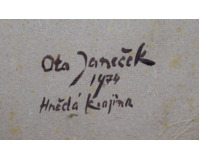 Ota Janeček
1974
Hnědá krajina